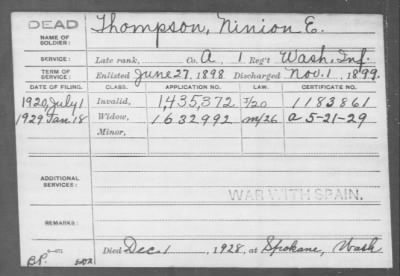 DEAD
NAME OF SOLDIER: Thompson, Ninion E.
SERVICE: Late rank, Co. A, 1 Reg't Wash. Inf.
TERM OF SERVICE: Enlisted June 27, 1898 Discharged Nov. 1, 1899.
DATE OF FILING. CLASS. APPLICATION NO. LAW. CERTIFICATE NO.
1920, July 1 Invalid, 1,435,372 1183861
1929 Jan 18 Widow, 1632992 m/26 a-5-21-29
Minor,
ADDITIONAL SERVICES:
WAR WITH SPAIN.
REMARKS:
Died Dec. 1, 1928, at Spokane, Wash